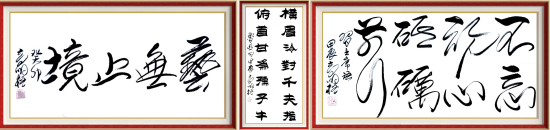 藝無止境
癸卯
橫眉冷對千夫指
俯首甘為孺子牛
不忘
初心
砥礪
前行